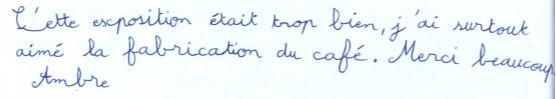 Cette exposition était trop bien, j'ai surtout
aimé la fabrication du café. Merci beaucoup
Ambre